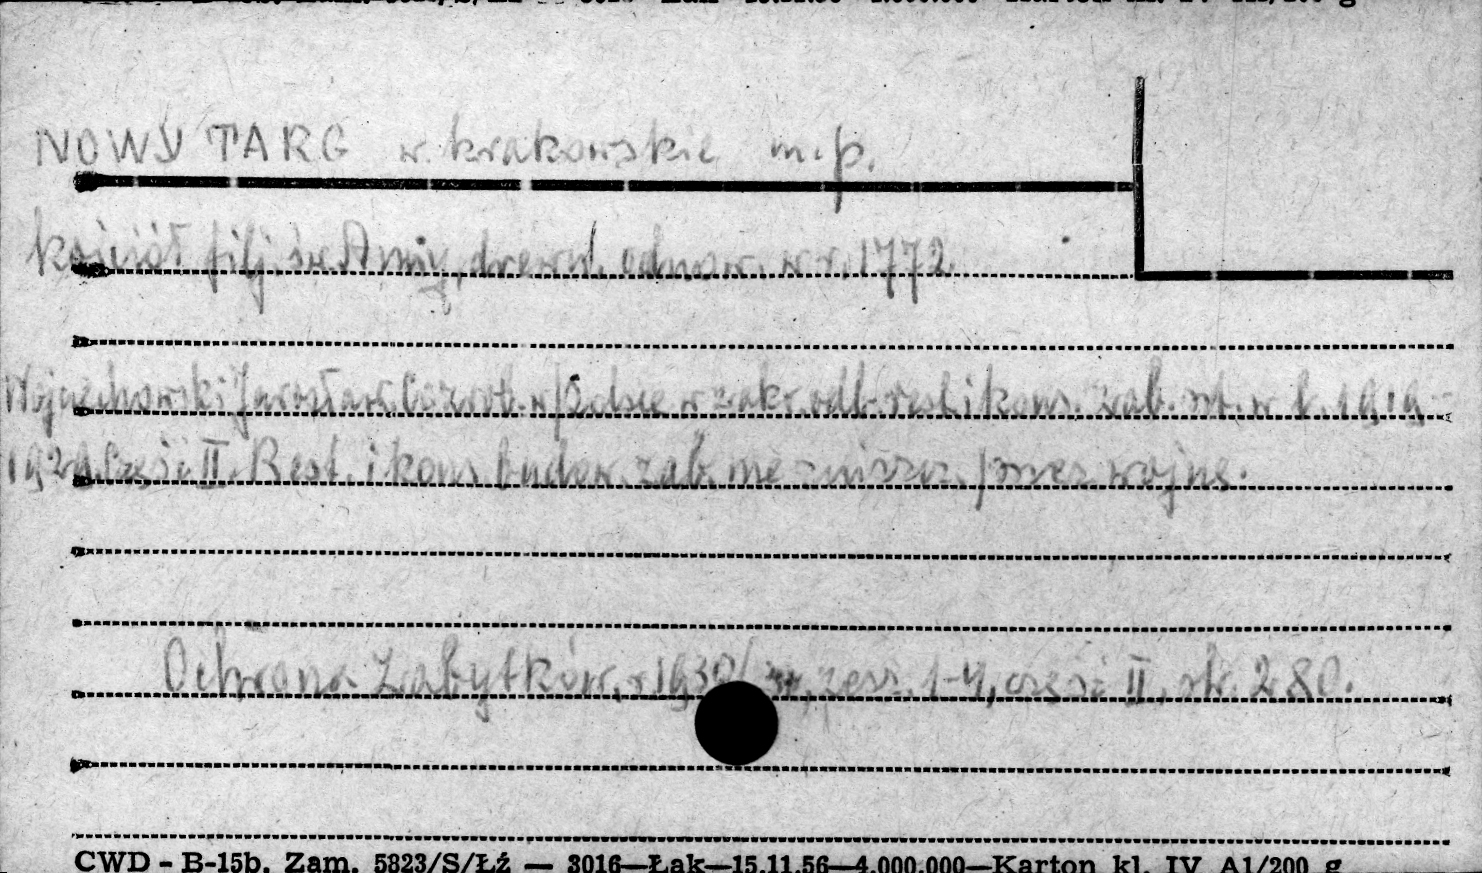 NOWY TARG w. krakowskie m.p.
kościół filj. św. Anny, drewn. odnow. w r. 1772.
Wojciechowski Jarosław. Co zrob. w Polsce w zakr. odb. rest. i kons. zab. szt. w l. 1919-
1929. Część II. Rest. i kons. budow. zab. nie zniszcz. przez wojnę.
Ochrona Zabytków, r. 1930/31, zesz. 1-4, część II, str. 280.
CWD - B-15b. Zam. 5823/S/Łź — 3016—Łak—15.11.56—4.000.000—Karton kl. IV A1/200 g